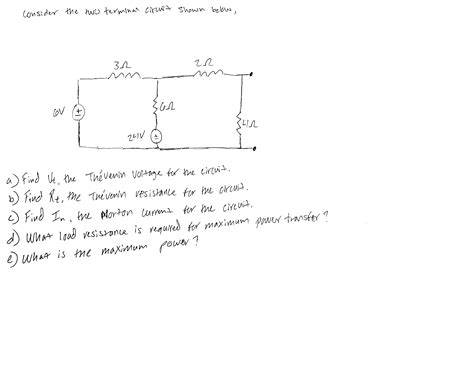 Consider the two terminal circuit shown below,
3Ω 2Ω
6V 6Ω 4Ω
24V
a) Find Vt, the Thévenin Voltage for the circuit.
b) Find Rt, the Thévenin resistance for the circuit.
c) Find In, the Norton current for the circuit.
d) What load resistance is required for maximum power transfer?
e) What is the maximum power?